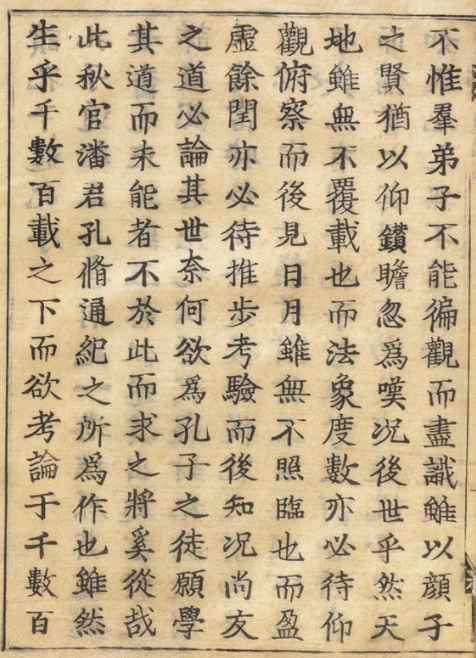 不惟羣弟子不能徧觀而盡識雖以顔子
之賢猶以仰鑚瞻忽爲嘆况後世乎然天
地雖無不覆載也而法象度數亦必待仰
觀俯察而後見日月雖無不照臨也而盈
虛餘閏亦必待推步考驗而後知况尚友
之道必論其世柰何欲爲孔子之徒願學
其道而未能者不於此而求之將奚從哉
此秋官潘君孔脩通紀之所爲作也雖然
生乎千數百載之下而欲考論于千數百